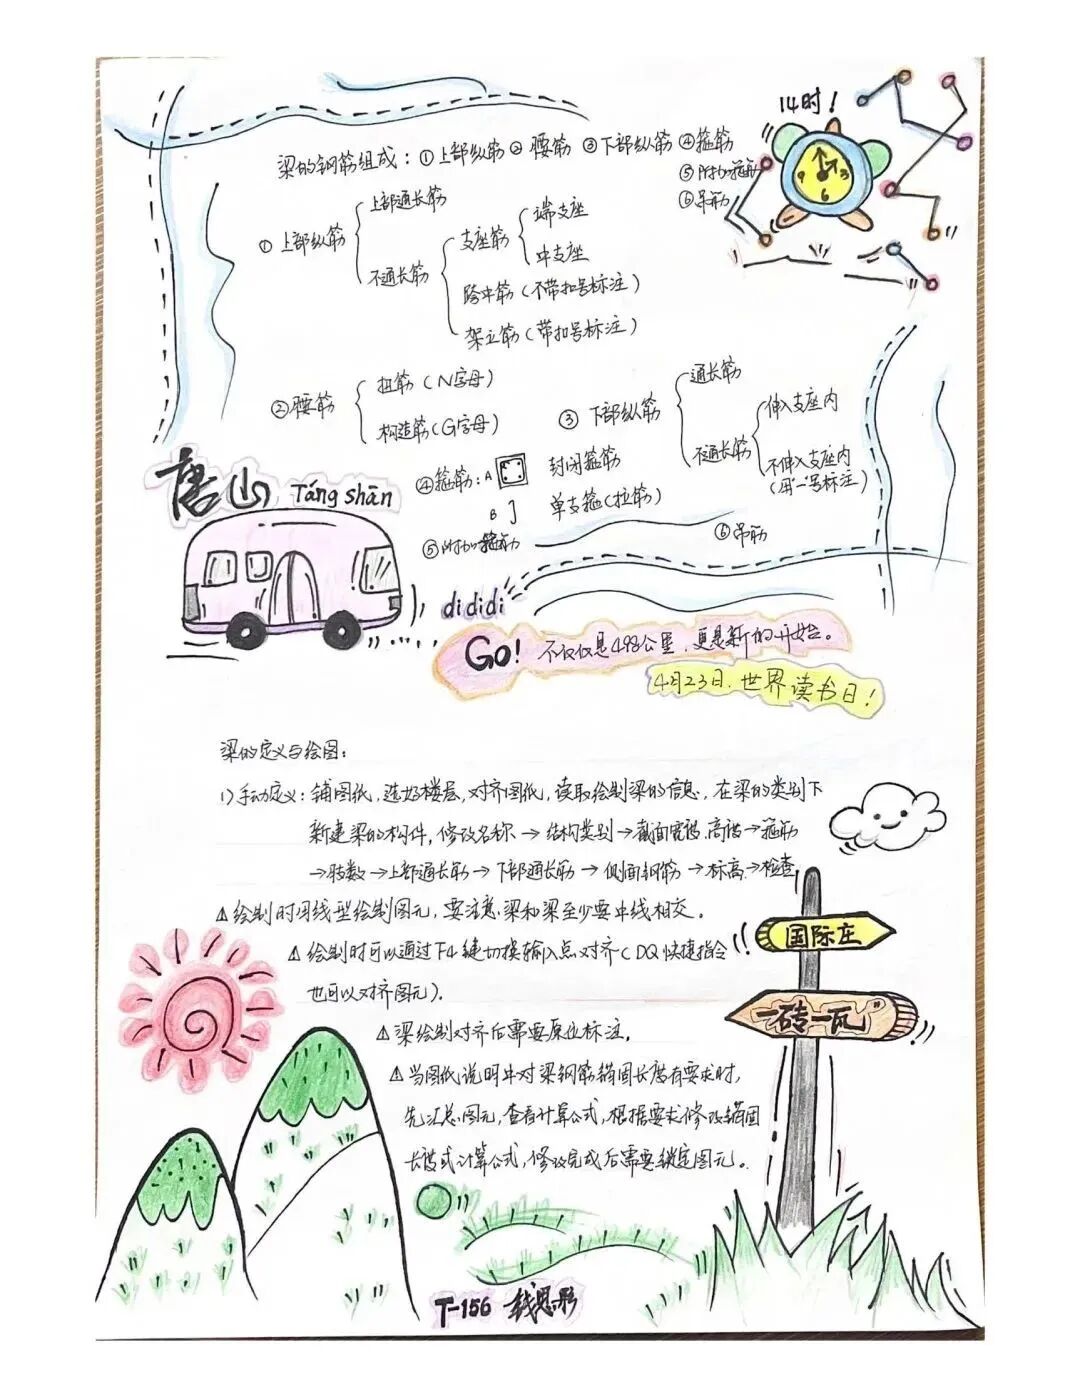 14时！
梁的钢筋组成：①上部纵筋②腰筋③下部纵筋④箍筋
⑤附加箍筋
⑥吊筋
9 3
6
上部通长筋
①上部纵筋
不通长筋
支座筋
端支座
中支座
跨中筋（不带括号标注）
架立筋（带括号标注）
②腰筋
扭筋（N字母）
构造筋（G字母）
③下部纵筋
通长筋
不通长筋
伸入支座内
不伸入支座内
（用"-"号标注）
④箍筋：A 封闭箍筋
B 单支箍（拉筋）
⑤附加箍筋
⑥吊筋
唐山 Táng shān
dididi
Go! 不仅仅是498公里，更是新的开始。
4月23日，世界读书日！
梁的定义与绘图：
1）手动定义：铺图纸，选好楼层，对齐图纸，读取绘制梁的信息，在梁的类别下
新建梁的构件，修改名称→结构类别→截面宽度、高度→箍筋
→肢数→上部通长筋→下部通长筋→侧面钢筋→标高→检查
⚠绘制时用线型绘制图元，要注意梁和梁至少要中线相交。
⚠绘制时可以通过F4键切换输入点对齐（DQ快捷指令
也可以对齐图元）。
⚠梁绘制对齐后需要原位标注。
⚠当图纸说明中对梁钢筋锚固长度有要求时，
先汇总图元，查看计算公式，根据要求修改锚固
长度或计算公式，修改完成后需要锁定图元。
国际庄
一砖一瓦"
T-156